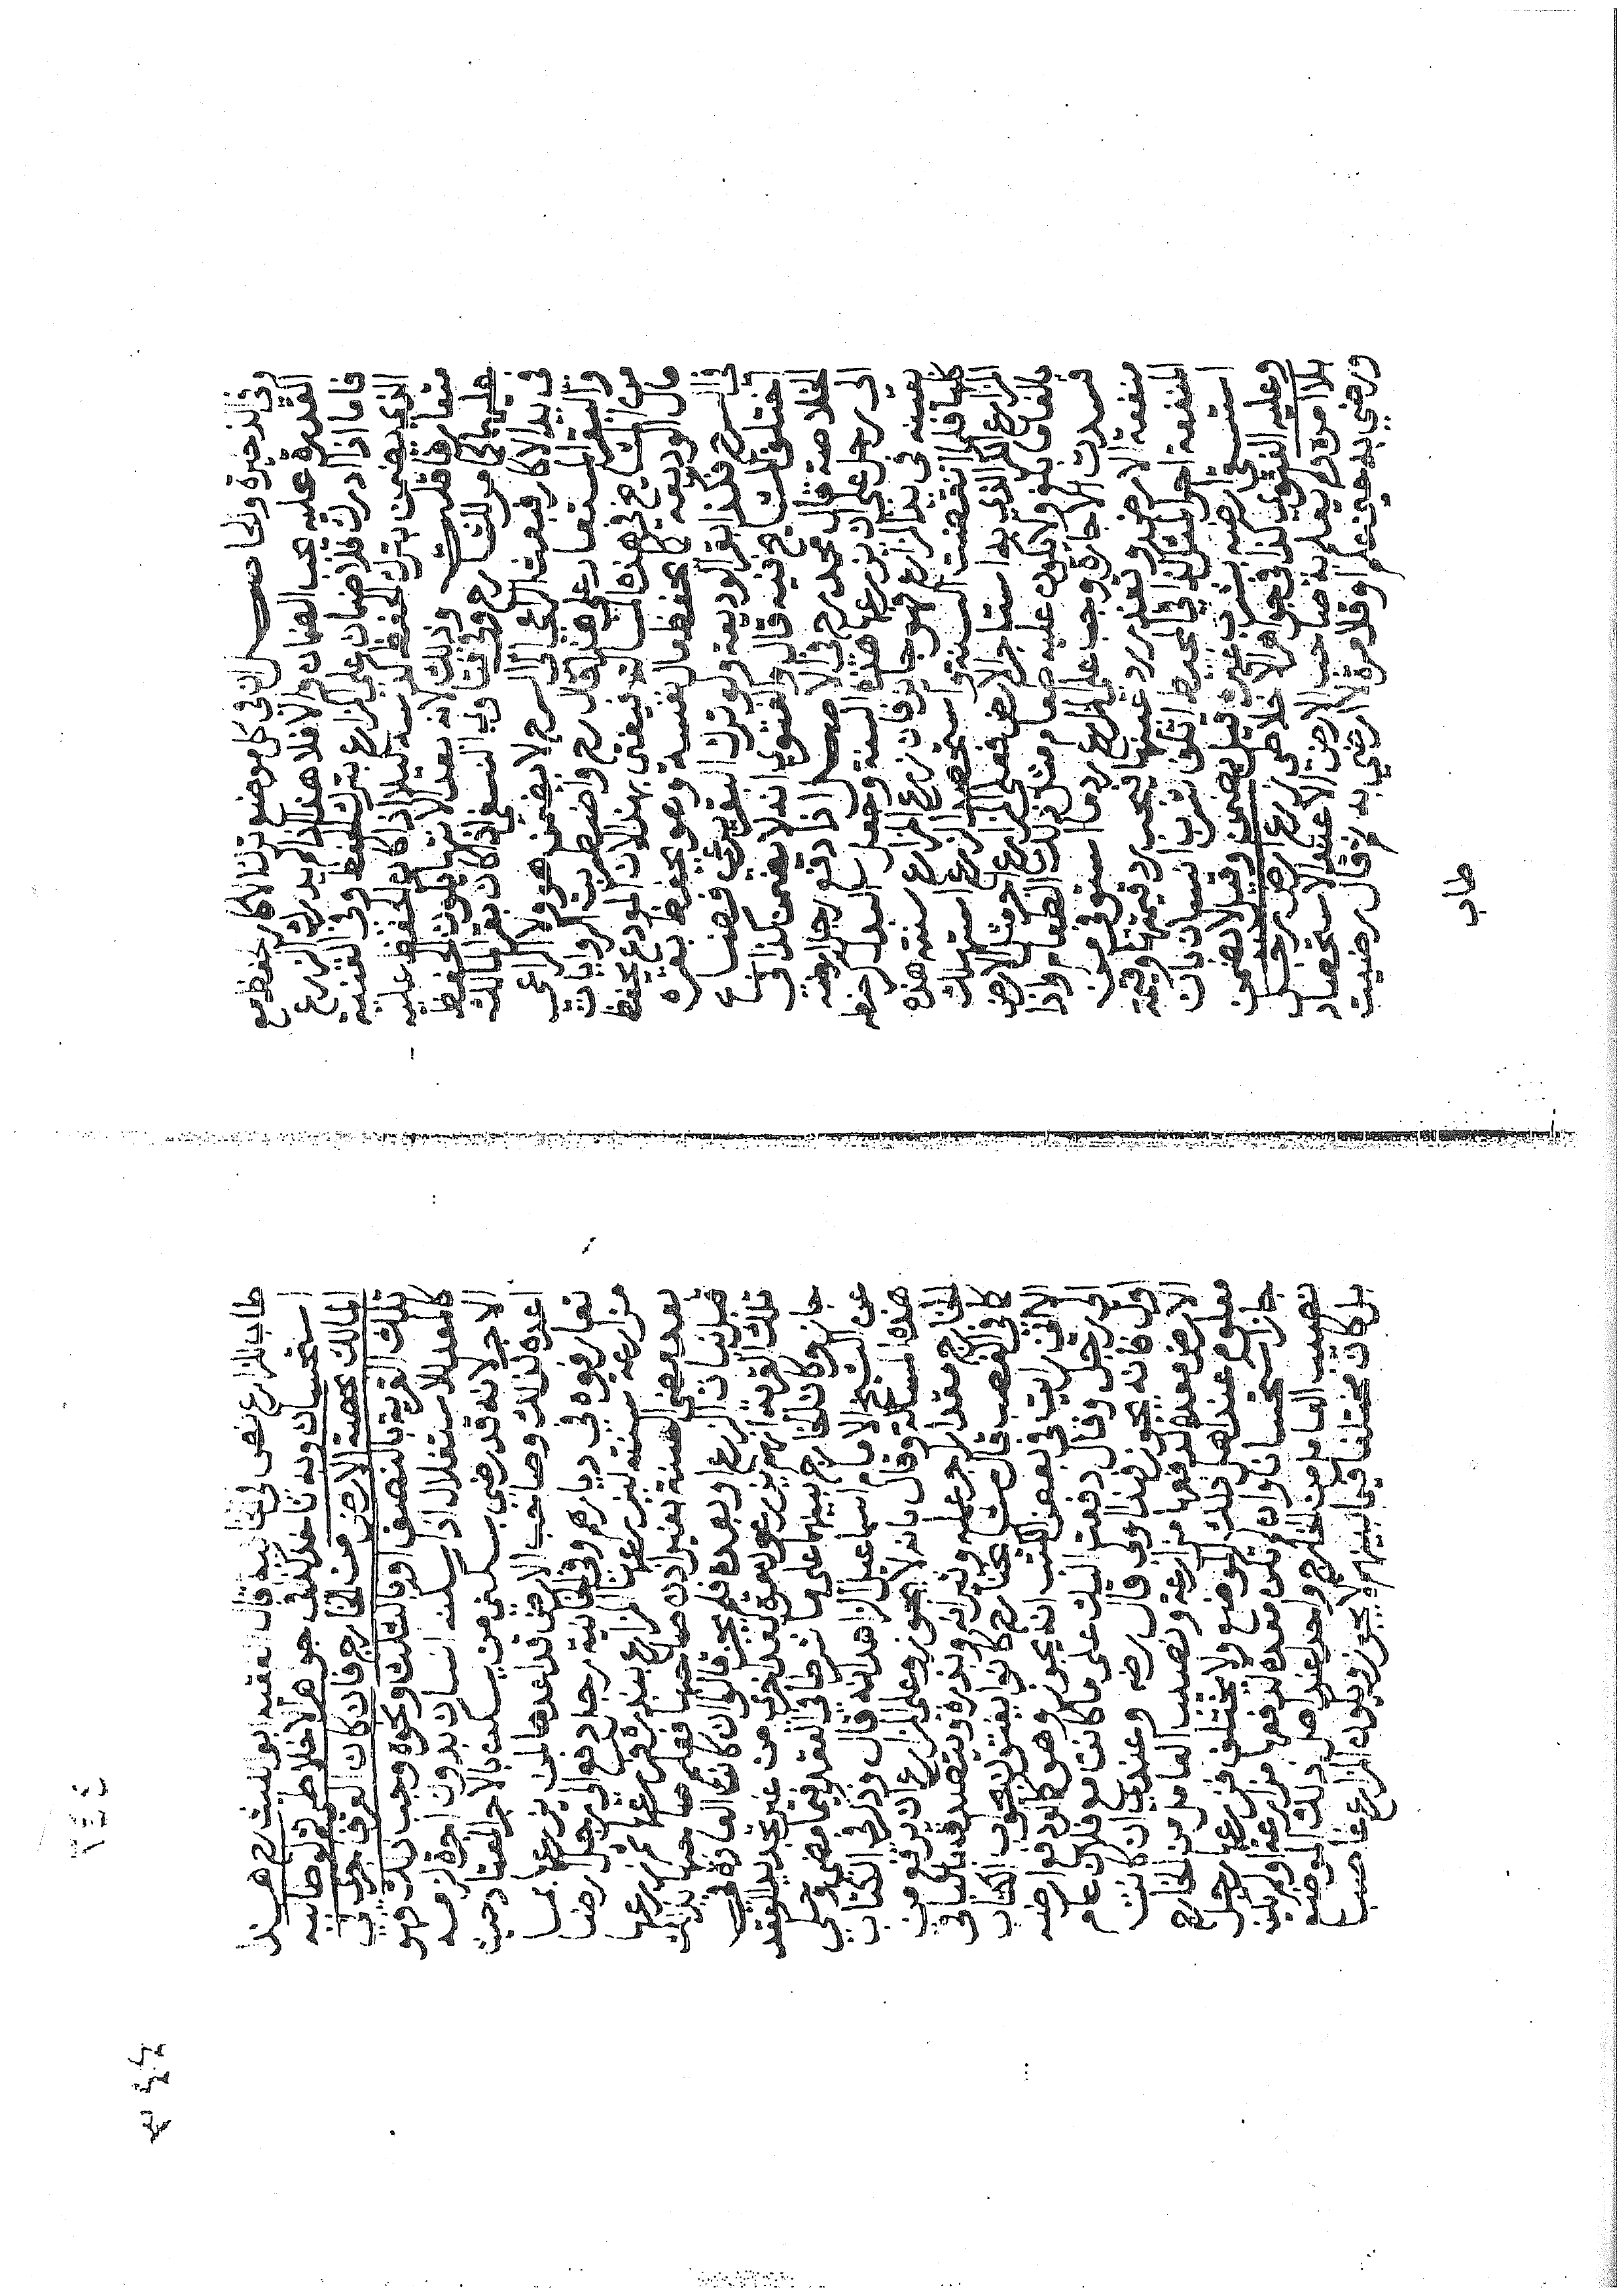 وفي الذخيرة والحاصل ان في كل موضع ترك الاكار حفظ مع
القدرة عليه يجب الضمان والا فلا هذا اذا لم يدرك الزرع
فاما اذا ادرك فلا ضمان على المزارع بترك الحفظ وفي القنية
الذي يضمن بترك الحفظ ليلا اذا كان الحفظ عليه
متعارفا قلت وذلك لانه بعد الانتهاء يكون الحفظ
عليهما كما مر للشارح وفي فتاوى النسفي اذا كان بقر المالك
في يد الاكار فبعث الراعي الى السرح لا يضمن هو ولا الراعي
والبقر المستعار على هذا قال رح واضطربت الروايات
من المشايخ في هذه المسألة فيفتى بهذا لان المودع يحفظ
مال الوديعة كما يحفظ مال نفسه وهو يحفظ بقره
في السرح فكذا بقر الوديعة ولو ترك البقر يرعى فضاع
اختلف المشايخ فيه قال والفتوى انه لا يضمن كذا في
الخلاصة قال محمد رح في الاصل اذا دفع رجل ارضه
الى رجل على ان يزرعها هذه السنة وجعل
بعينه في يد المزارع فهو جائز فان زرع المزارع سنته هذه
كلها فلما انقضت السنة واستحصد الزرع استهلك
المزارع الكر الذي به استاجر الارض فعلى المزارع اجر مثل الارض
بالغا ما بلغ ولا يكون عليه ضمان مثل ذلك الطعام واذا
فسدت الاجارة وجب على المزارع رد ما استوفى من
منفعة الارض وتعذر رد عينها فيجب رد قيمتها وقيمة
المنفعة اجر المثل كذا في المحيط اتلف شرب انسان بان
استسقى ارضه بشرب غيره قيل يضمن وقيل لا يضمن
وعليه الفتوى كذا في جواهر الاخلاطي زرع ارض رجل
بلا امره ولم يعلم به صاحب الارض الا عند الاستحصاد
ورضي به حين علم او قال مرة لا ارضى به ثم قال رضيت
طاب
طاب للزارع نص في الخانية قال الفقيه ابو الليث رح هذا
استحسان وبه ناخذ كذا في جواهر الاخلاطي ولو طالبه
المالك بحصة الارض من الخارج فان كان العرف جرى في
تلك القرية بالنصف او بالثلث ونحوه وجب ذلك فهو
كالمعد للاستغلال اذا سكنه انسان بدون اجرة لزمه
الاجر لانه قد رضي بسكنى من يسكنه بالاجر المعتاد حيث
اعده لذلك وصاحب الارض قد اعدها لمن يزرعها بما
تعارفوه في ديارهم وفي الخانية رجل دفع الى رجل ارضا
مزارعة سنة ليزرعها المزارع ببذره فزرعها ثم زرعها
بعد مضي السنة بغير اذن صاحبها فعلم صاحبها بذلك
قبل نبات الزرع او بعده فلم يجز قالوا ان كانت العادة في
تلك القرية انهم يزرعون مرة بعد اخرى من غير تجديد العقد
جاز وكان الخارج بينهما على ما شرطا في العقد فيما مضى وحكي
عن الشيخ الامام اسماعيل الزاهد انه قال وذكر في الكتاب
هذه المسألة وقال بانه لا يجوز وعلى المزارع ان يرفع من
الخارج مقدار اجر عمله وثيرانه وبذره ويتصدق بالباقي
كما في الغصب قال مشايخنا رح كانوا يفتون بجواب الكتاب
الا اني رايت في بعض الكتب انه يجوز وهو كما لو دفع ارضه
الى رجل وقال دفعت اليك على ما كانت مع فلان عام
اول فانه يجوز فهذا اولى قال رضه وعندي ان كانت
الارض معدة لدفعها مزارعة ونصيب العامل من الخارج
معلوم عند اهل ذلك الموضع ولا يختلف فزرعها رجل
جاز استحسانا وان لم تكن معدة لدفعها مزارعة او لم يكن
نصيب العامل من الخارج واحدا عند اهل ذلك الموضع
بل كان مختلفا فيما بينهم لا يجوز ويكون المزارع غاصبا